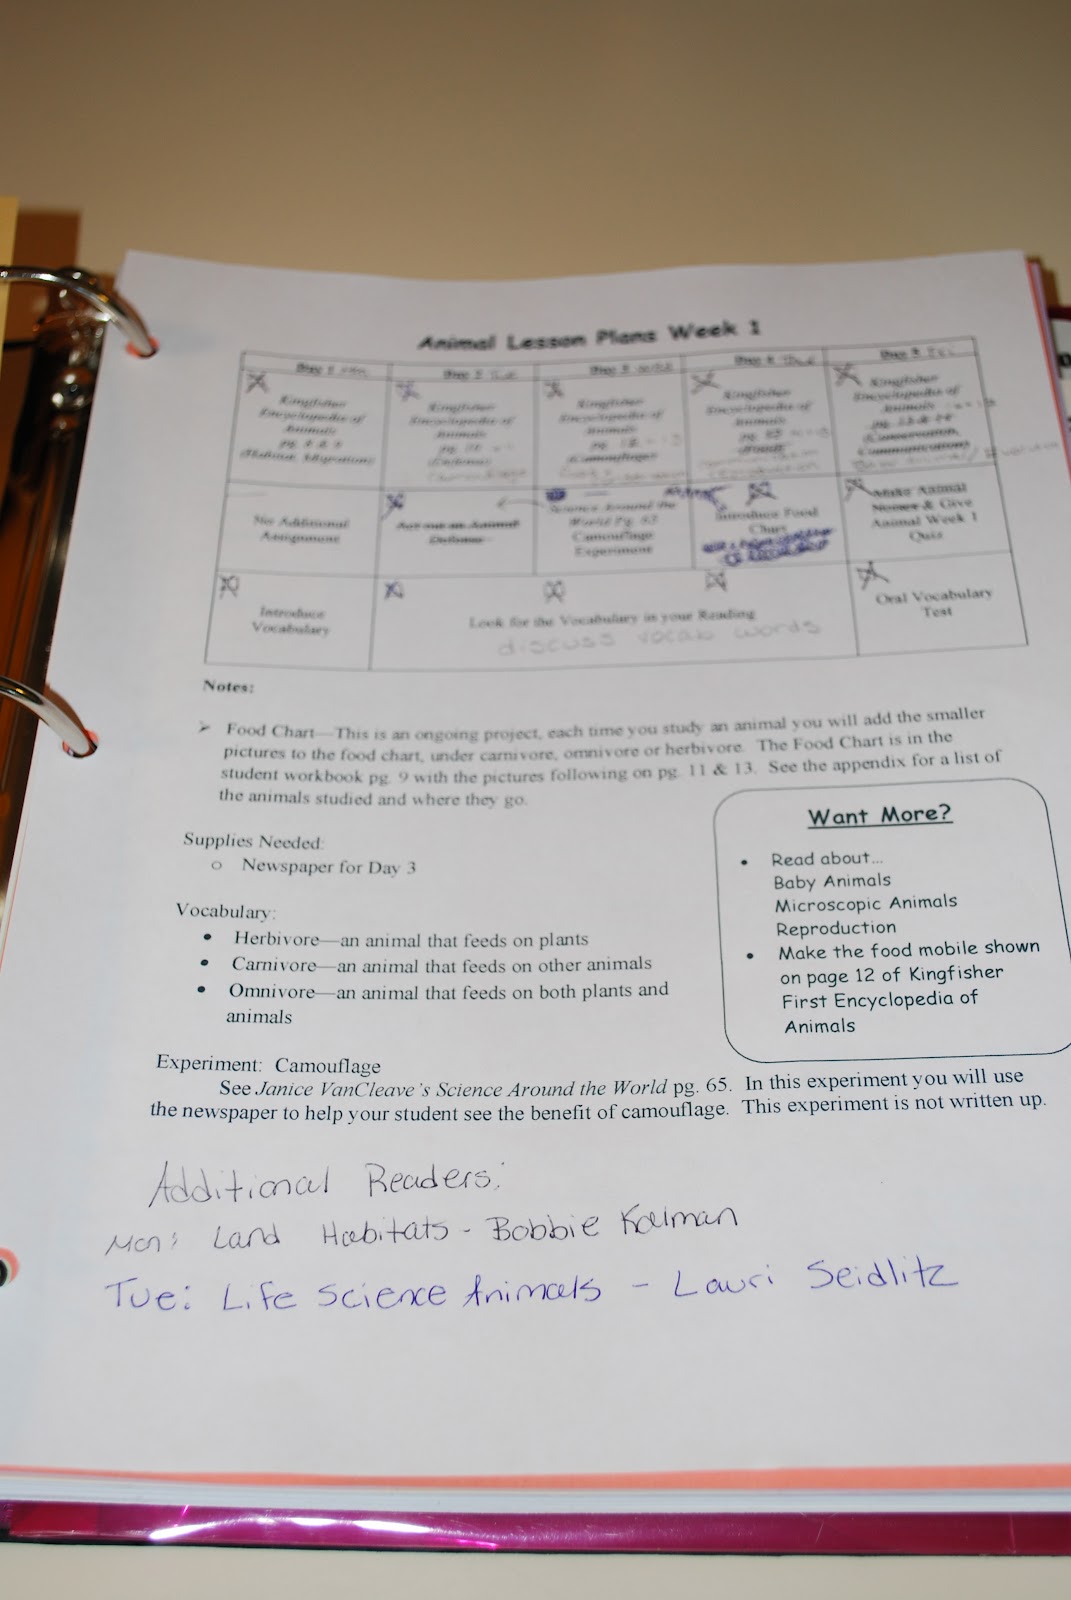 Animal Lesson Plans Week 1
Day 1
Day 2 Tue
Day 3
Day 4
Day 5 Fri
Kingfisher
Encyclopedia of
Animals
pg.
(Habitat, Migration)
Kingfisher
Encyclopedia of
Animals
pg.
(Defense)
Camouflage
Kingfisher
Encyclopedia of
Animals
pg.
(Camouflage)
Kingfisher
Encyclopedia of
Animals
pg.
(Food)
Reproduction
Kingfisher
Encyclopedia of
Animals
pg.
(Conservation,
Communication)
No Additional
Assignment
Act out an Animal
Defense
Science Around the
World Pg.
Camouflage
Experiment
Introduce Food
Chart
Make Animal
& Give
Animal Week 1
Quiz
Introduce
Vocabulary
Look for the Vocabulary in your Reading
discuss vocab words
Oral Vocabulary
Test
Notes:
➢ Food Chart—This is an ongoing project, each time you study an animal you will add the smaller
pictures to the food chart, under carnivore, omnivore or herbivore. The Food Chart is in the
student workbook pg. 9 with the pictures following on pg. 11 & 13. See the appendix for a list of
the animals studied and where they go.
Supplies Needed:
o Newspaper for Day 3
Vocabulary:
• Herbivore—an animal that feeds on plants
• Carnivore—an animal that feeds on other animals
• Omnivore—an animal that feeds on both plants and
animals
Want More?
• Read about...
Baby Animals
Microscopic Animals
Reproduction
• Make the food mobile shown
on page 12 of Kingfisher
First Encyclopedia of
Animals
Experiment: Camouflage
See Janice VanCleave's Science Around the World pg. 65. In this experiment you will use
the newspaper to help your student see the benefit of camouflage. This experiment is not written up.
Additional Readers:
Mon: Land Habitats - Bobbie Kalman
Tue: Life Science Animals - Lauri Seidlitz